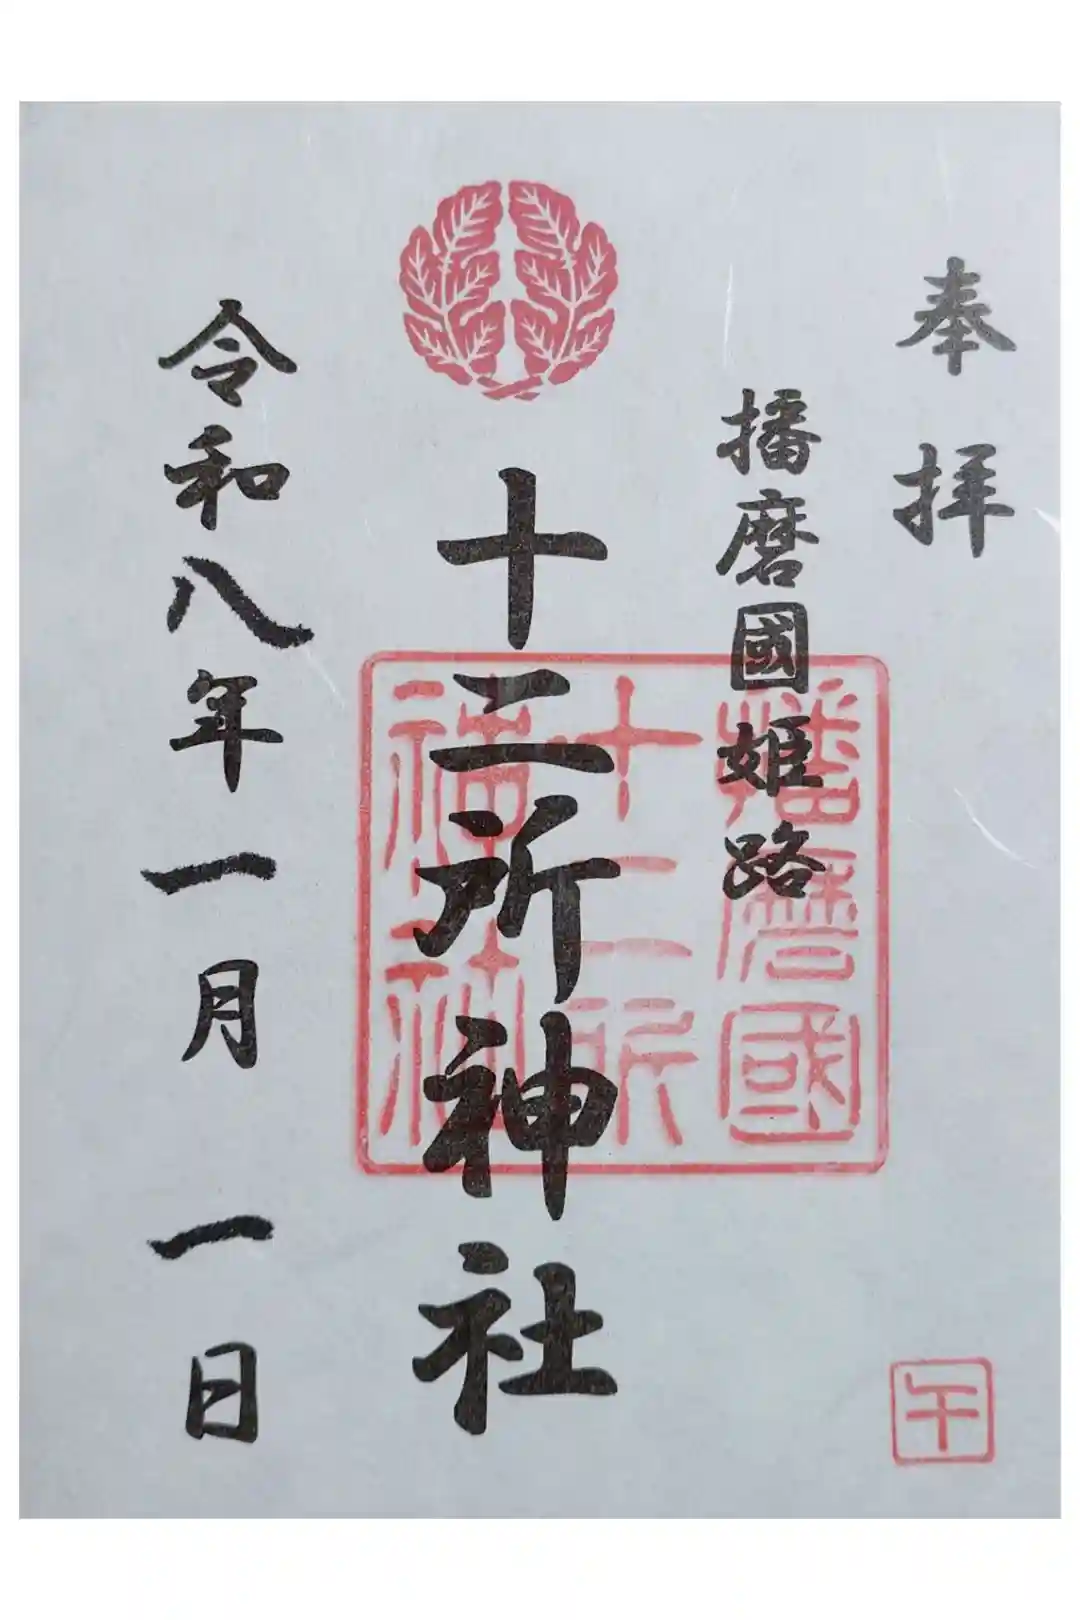 奉拝
播磨國姫路
十二所神社
令和八年一月一日
播磨國
十二所
神社
午